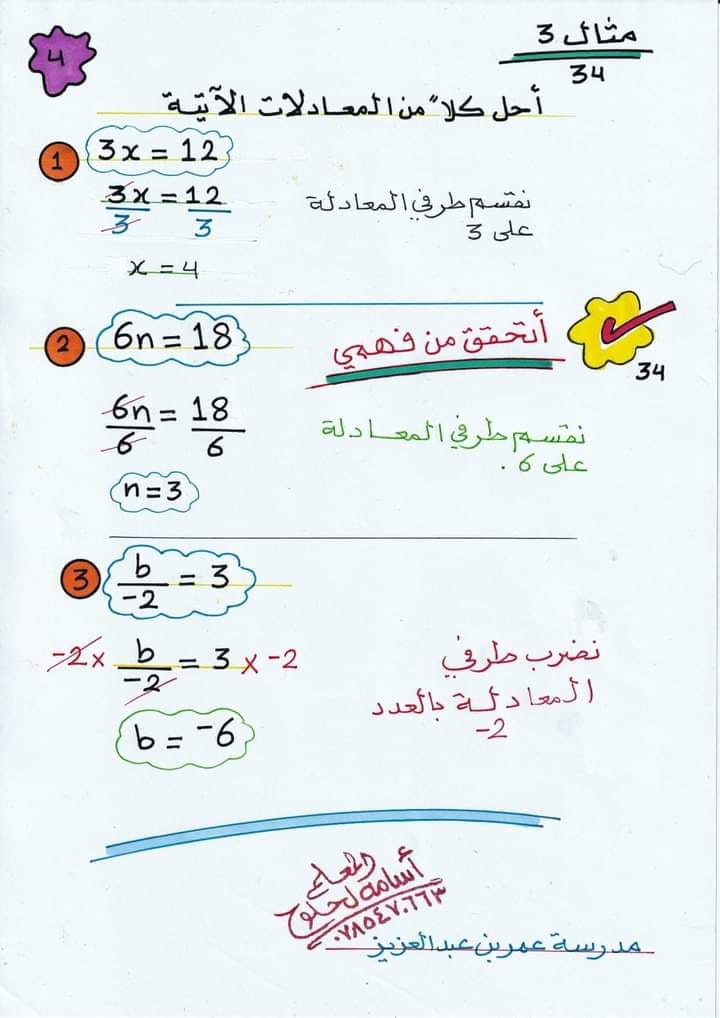 4
مثال 3
34
أحل كلاً من المعادلات الآتية
1 3x = 12
3x = 12
3 3
نقسم طرفي المعادلة
على 3
x = 4
2 6n = 18
أتحقق من فهمي
34
6n = 18
6 6
نقسم طرفي المعادلة
على 6 .
n = 3
3 b = 3
-2
-2 x b = 3 x -2
-2
نضرب طرفي
المعادلة بالعدد
-2
b = -6
المعلم
أسامة لحلوح
٠٧٨٥٤٧٠٦٦٣
مدرسة عمر بن عبد العزيز